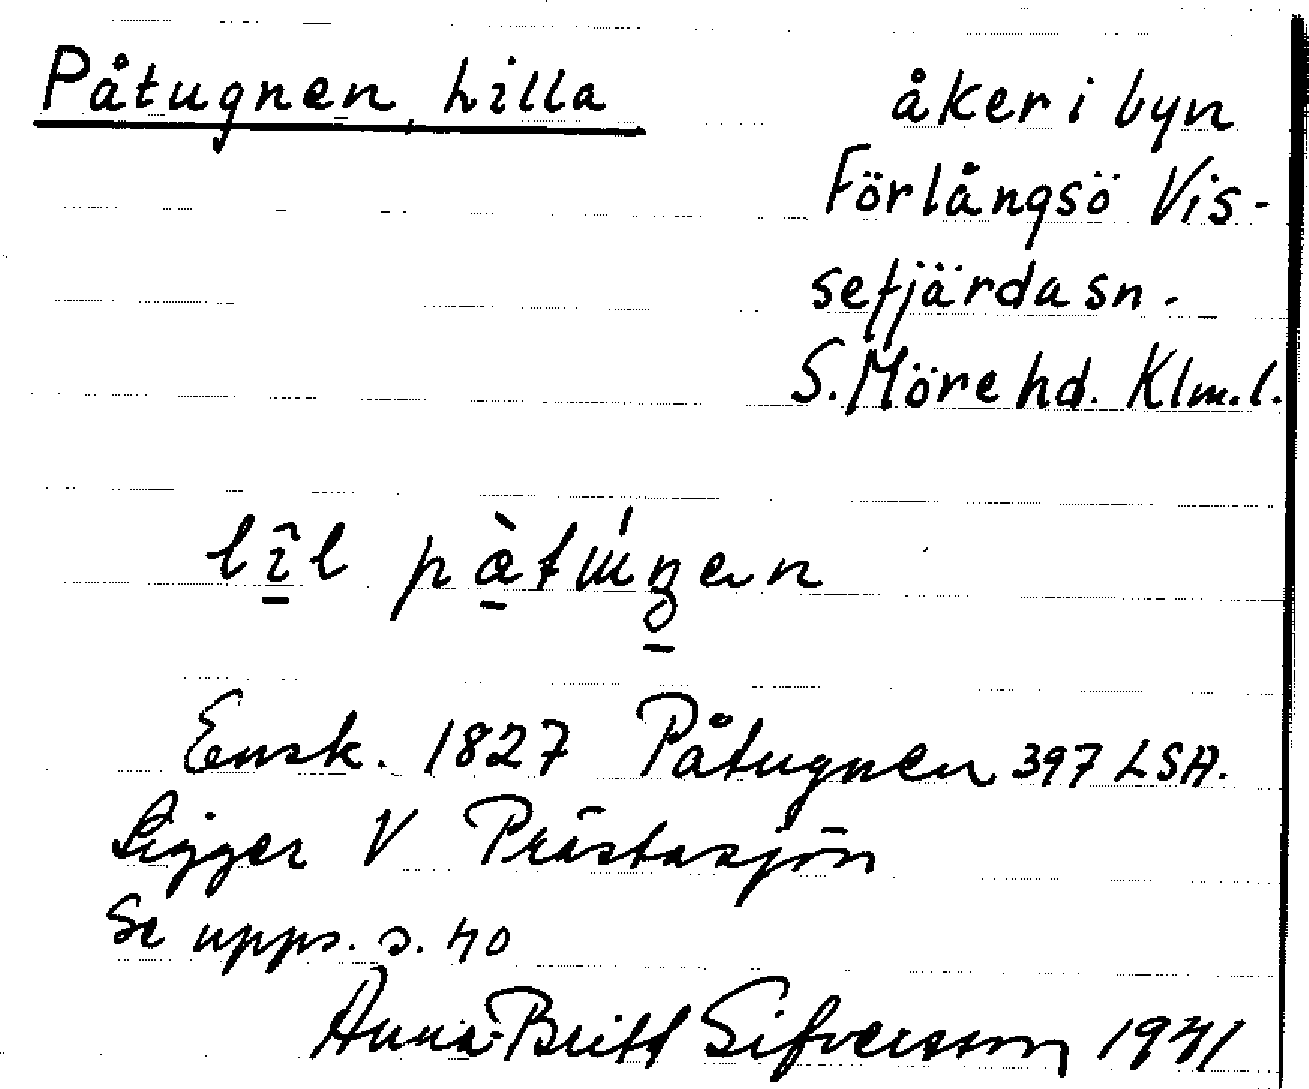 Påtugnen, Lilla
åker i byn
Förlångsö Vis-
sefjärda sn.
S. Möre hd. Klm. l.
Ensk. 1827 Påtugnen 397 LSA.
Ligger V Prästasjön
Se upps. s. 40
Anna-Britt Sifversson 1941